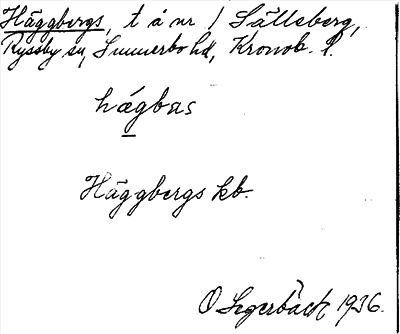 Häggbergs, t å nr 1 Sälleberg,
Ryssby sn, Sunnerbo hd, Kronob. l.
hägbas
Häggbergs kb.
O Segerbäck 1936.